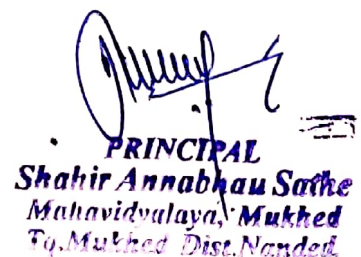 PRINCIPAL
Shahir Annabhau Sathe
Mahavidyalaya, Mukhed
Tq. Mukhed Dist. Nanded.